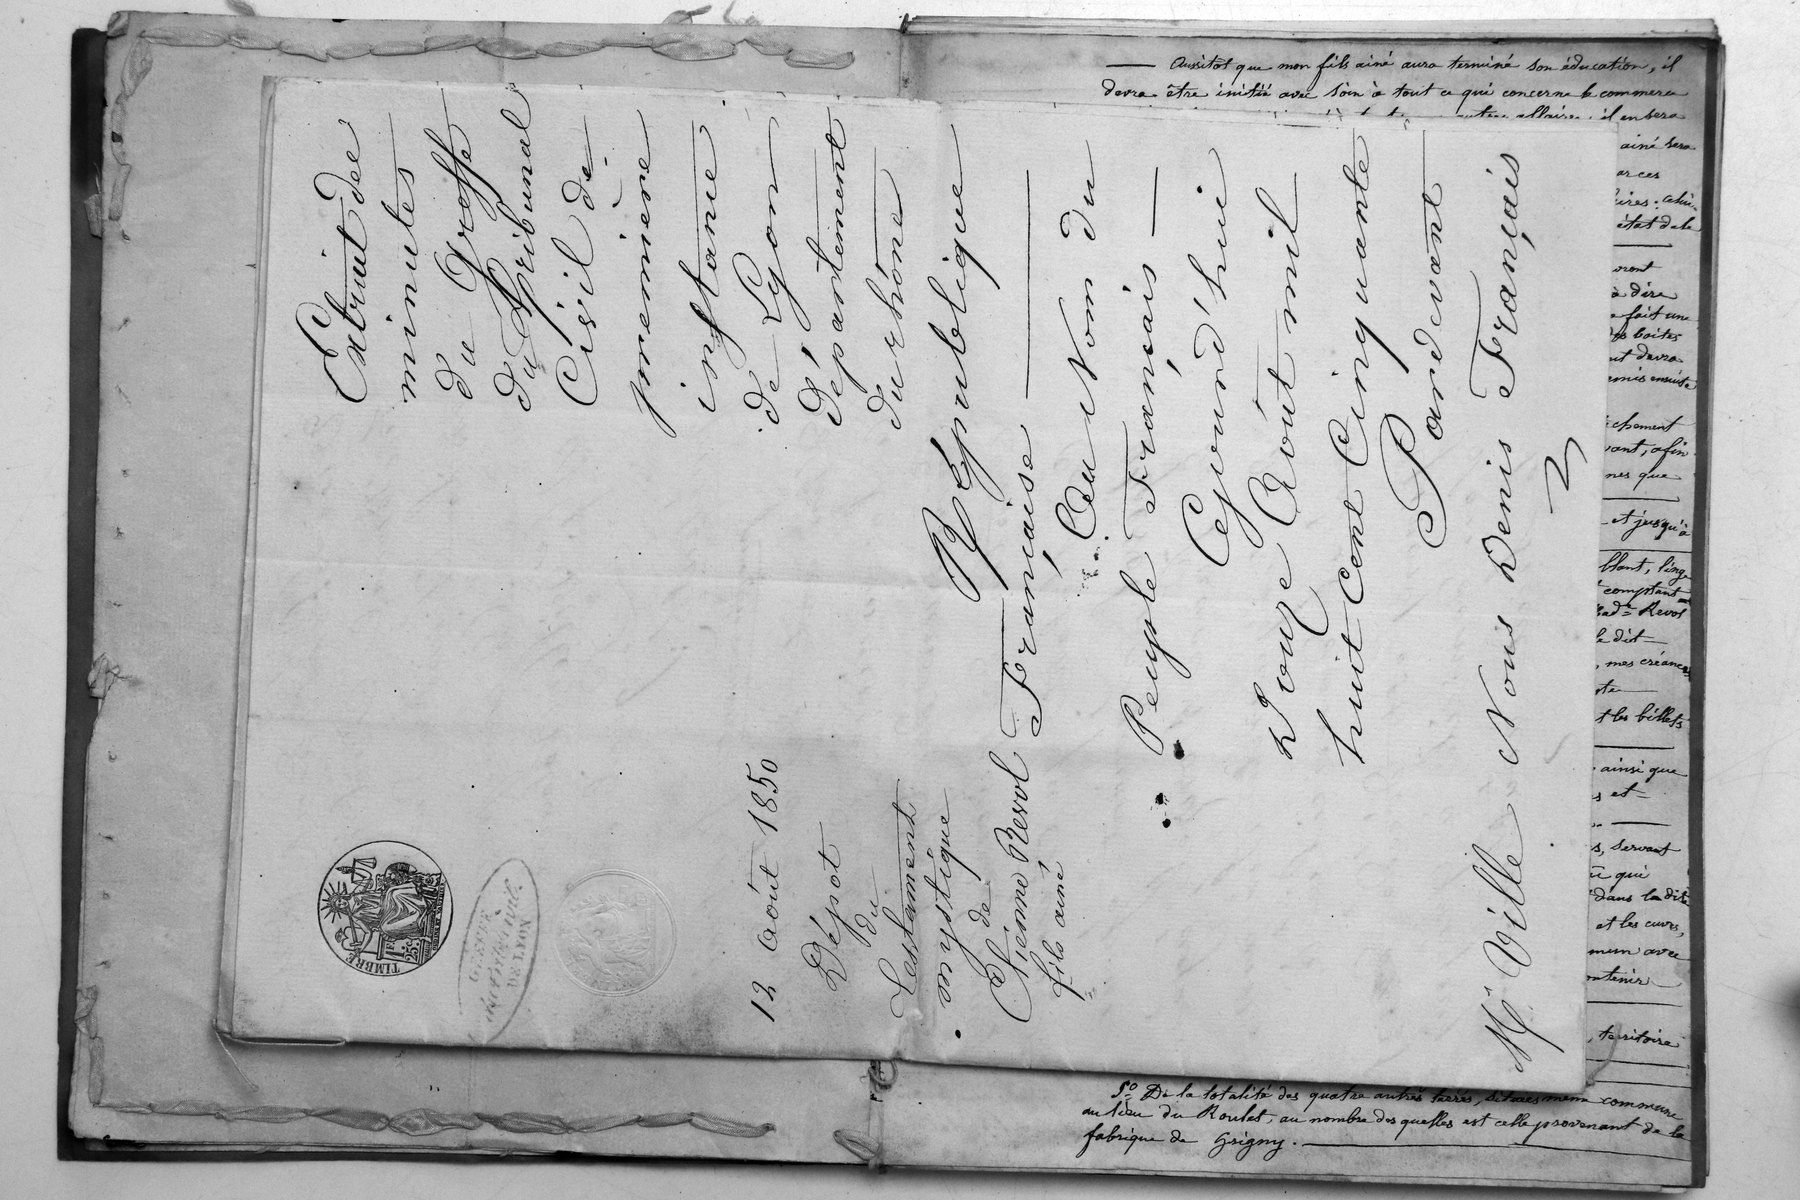 Extrait des
minutes
du Greffe
du Tribunal
Civil de
premiere
instance
de Lyon
département
du rhône
République
Française
Au Nom du
Peuple Français
Cejourd'hui
Douze Août mil
huit cent Cinquante
Pardevant
Nous Denis Français
TIMBRE
1F. 25c.
GREFFE
DE LYON
12 Août 1850
Dépot
du
Testament
mystique
de
Etienne Revol
fils ainé
Me Ville
Aussitôt que mon fils ainé aura terminé son éducation, il
devra être initié avec soin à tout ce qui concerne le commerce
il en sera
ainé sera
état de le
vront
à dire
fait une
boites
devra
ensuite
vant, afin
nes que
et jusqu'à
blant, linge
comptant
Revol
dit
mes créances
t les billets
ainsi que
est
servant
qui
dans la dite
et les cuves,
mun avec
territoire
5o De la totalité des quatre autres terres, situées meme commune
au lieu du Roulet, au nombre des quelles est celle provenant de la
fabrique de Grigny.